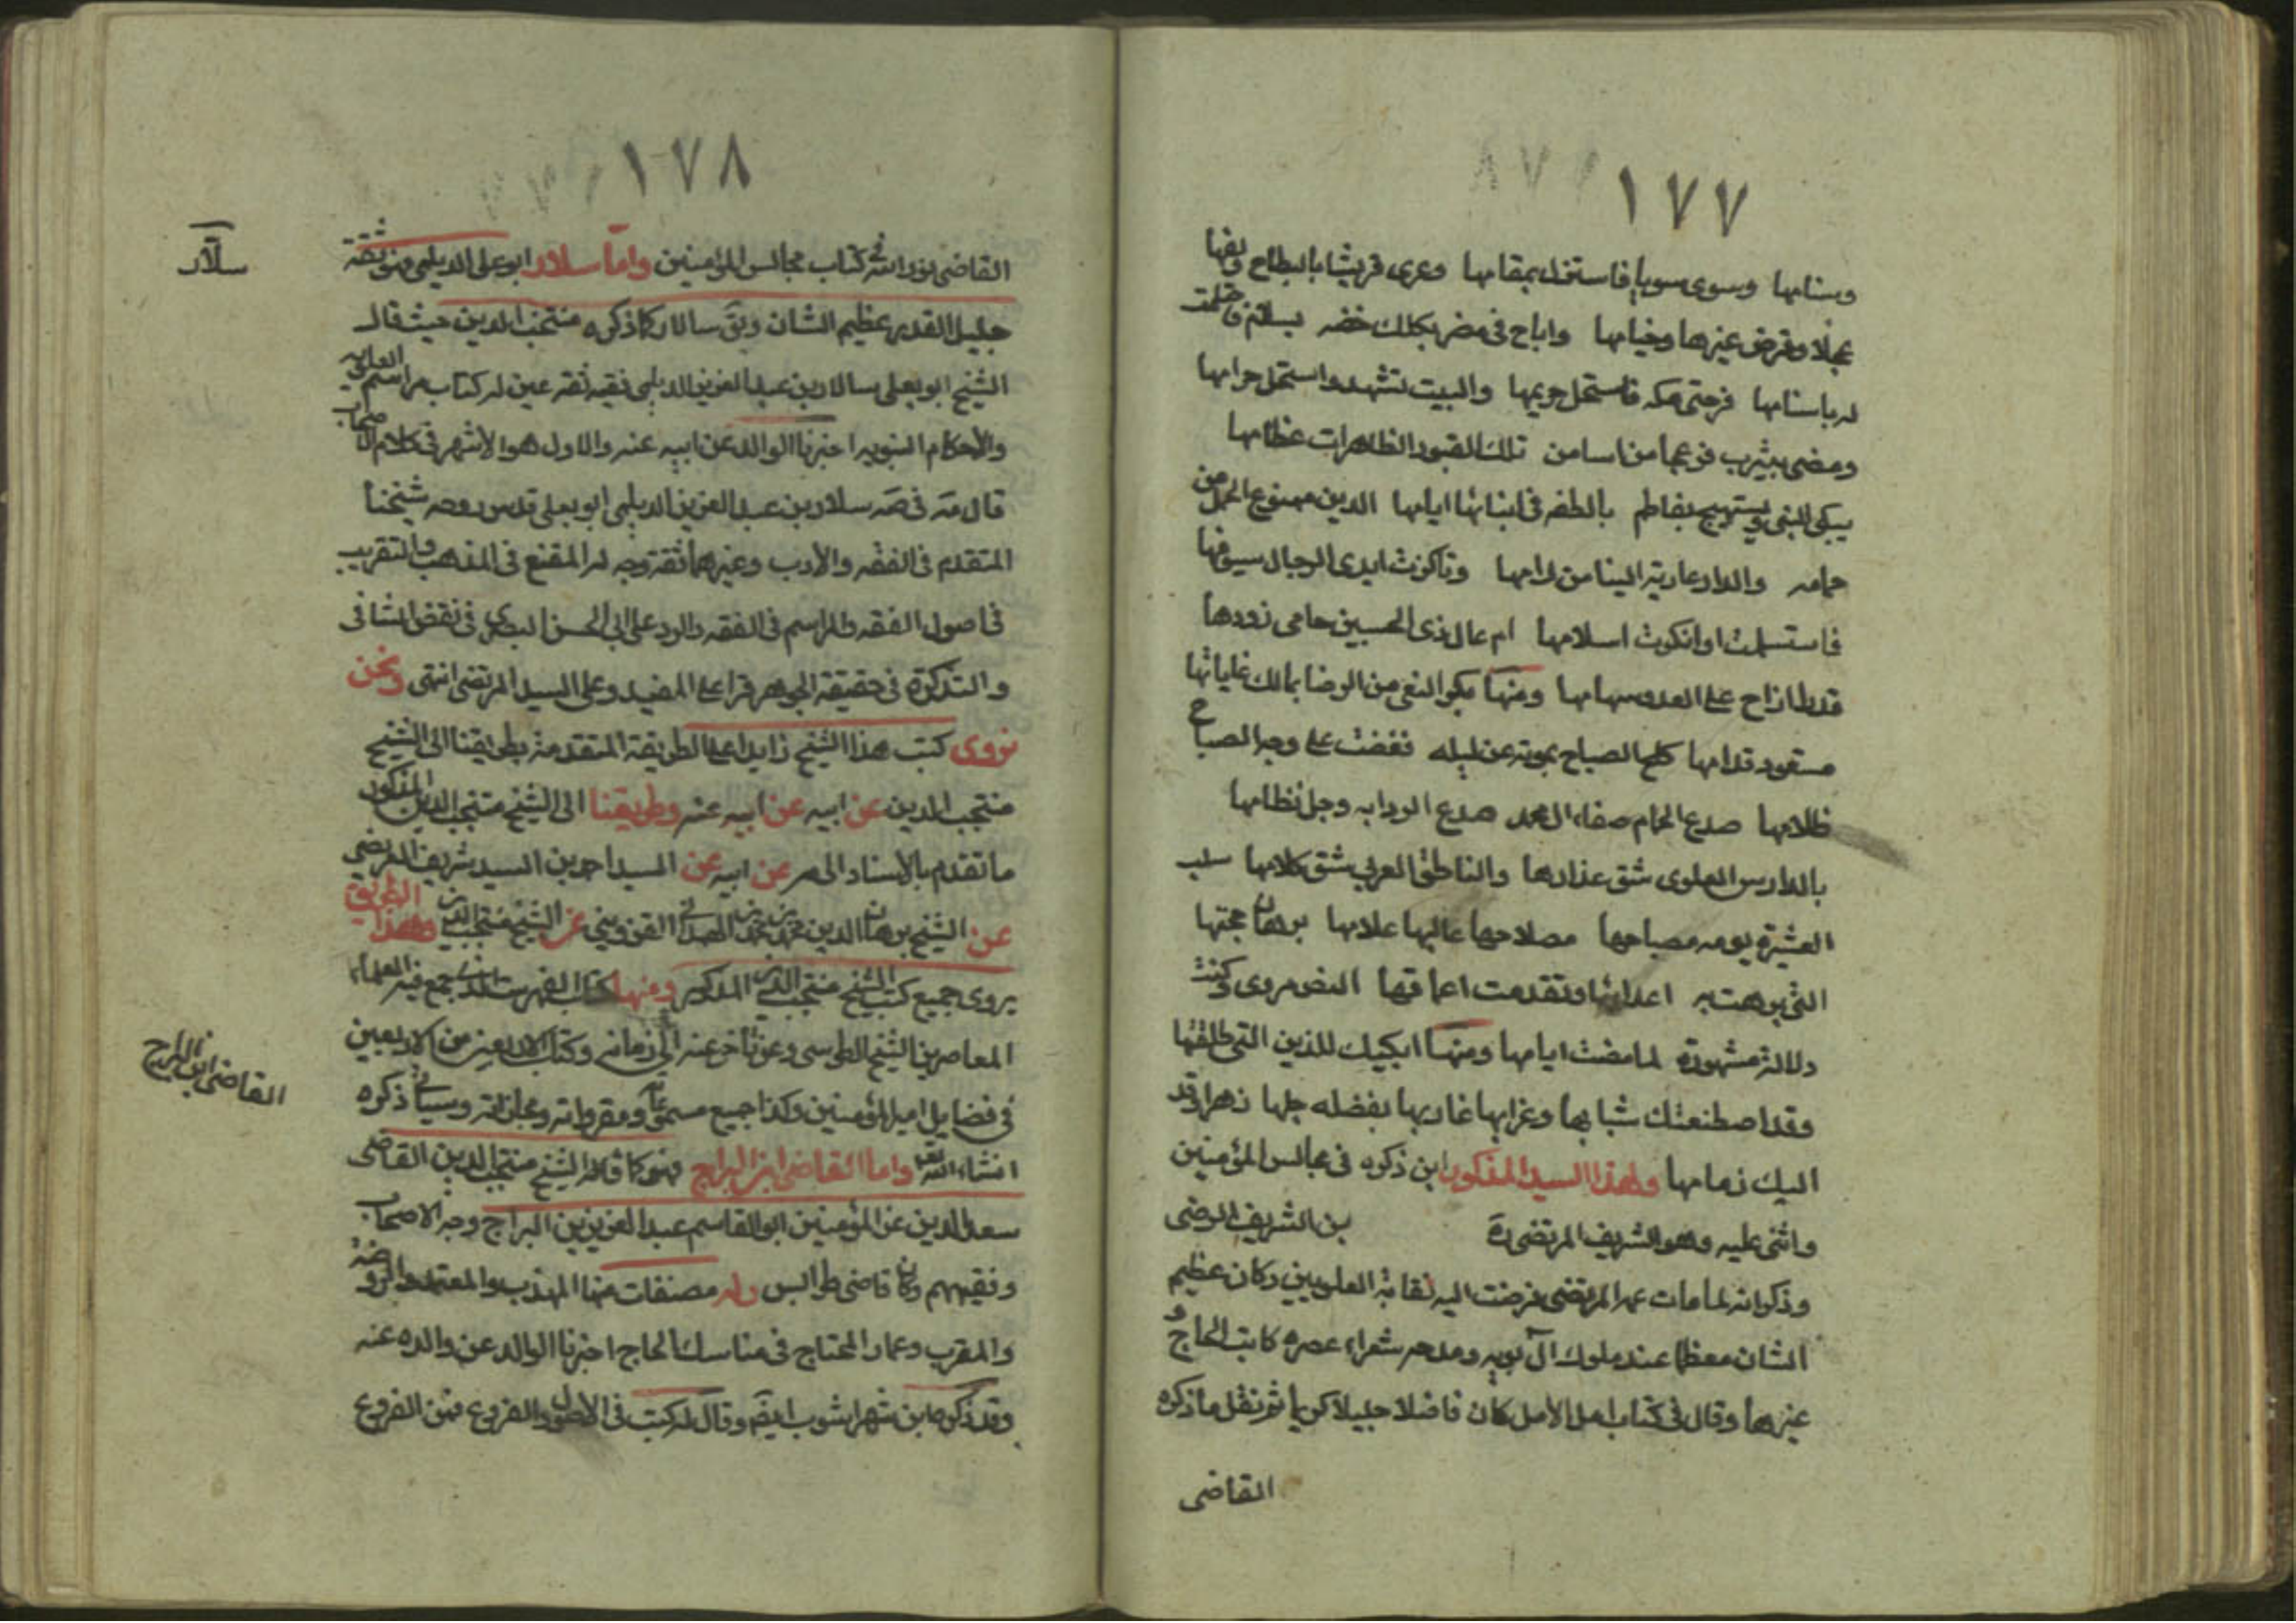 ١٧٧
وسنامها وسوى سويا فاستفل بمقامها وعرى قريشا بالبطاح ولفها
عجلا وقرض عيزها وخيامها واباح في مضر بكلك خضه يسلتم
له باسنامها فرحتى مكه فاستحل حريمها والبيت تشهد واستحل حرامها
ومضى بيثرب مزعجا من اسامن تلك القبور الظاهرات عظامها
يبكى النبى ويستهيج بفاطم بالطف في ابنائها ايامها الدين ممنوع الحمى من
حمامه والدار عارية البنا من رامها وتناكرت ايدى الرجال سيوفها
فاستسلمت او انكرت اسلامها ام عال ذى الحسبين حامى زودها
قدطا ازاح على العدو سهامها ومنها بكر النعى من الرضا بمالك غاياتها
مستعود قدامها كلح الصباح بموته عن ليله نفضت على وجه الصباح
ظلامها صدع الحمام صفاة ال محمد صدع الردا به وجل نظامها
بالدارس العلوى شق عذارها والناطق العربى شق كلامها سلب
العشيرة يومه مصباحها مصلاحها عاليها علامها برهان حجتها
التى برهت به اعدائها وتقدمت اعماقها النص مروى وكنت
دلالة مشهودة لما مضت ايامها ومنها ابكيك للدين التى طلقتها
وقد اصطنعتك شبابها وغرابها غاربها بفضله جلها زهرا وقد
اليك زمامها ولهذا السيد المذكور ابن ذكره فى مجالس المؤمنين
واثنى عليه وهو الشريف المرتضى ره بن الشريف الرضى
وذكر انه لما مات عمه المرتضى فرضت اليه نقابة العلويين وكان عظيم
الشان معظما عند ملوك آل بويه ومدحه شعراء عصره كابن الحاج و
غيرها وقال فى كتاب امل الامل كان فاضلا جليلا كريما ثم نقل ما ذكره
القاضى
١٧٨
القاضى نور الله فى كتاب مجالس المؤمنين واما سلار ابو يعلى الديلمى فهو ثقة
جليل القدر عظيم الشان ويق سالار كما ذكره منتجب الدين حيث قال
الشيخ ابو يعلى سالار بن عبد العزيز الديلمى فقيه ثقة عين له كتاب مراسم العلويه
والاحكام النبويه اخبرنا الوالد عن ابيه عنه والاول هو الاشهر فى كلام الاصحاب
قال مة فى صه سلار بن عبد العزيز الديلمى ابو يعلى قدس روحه شيخنا
المتقدم فى الفقه والادب وغيرهما ثقة وجه له المقنع فى المذهب والتقريب
فى اصول الفقه والمراسم فى الفقه والرد على ابى الحسن البصرى فى نقض الشافى
والتذكرة فى حقيقة الجوهر قرا على المفيد وعلى السيد المرتضى انتهى ونحن
نروى كتب هذا الشيخ زايدا على الطريقة المتقدمة بطريقنا الى الشيخ
منتجب الدين عن ابيه عن ابيه عنه وطريقنا الى الشيخ منتجب الدين المذكور
ما تقدم بالاسناد الى مر عن ابيه عن السيد احمد بن السيد شريف المرتضى
عن الشيخ برهان الدين محمد بن محمد الحمدانى القزوينى عن الشيخ منتجب الدين وبهذا الطريق
يروى جميع كتب الشيخ منتجب الدين المذكور ومنها كتاب الفهرست الذى جمع فيه العلماء
المعاصرين الشيخ الطوسى ومن تاخر عنه الى زمانه وكتاب الاربعين من الاربعين
فى فضايل امير المؤمنين وكذا جميع مسموعاته ومقرواته ومجازاته وسيأتى ذكره
انشاء الله تعالى واما القاضى ابن البراج فهو كما قاله الشيخ منتجب الدين القاضى
سعد الدين عز المؤمنين ابو القاسم عبد العزيز بن البراج وجه الاصحاب
وفقيههم وكان قاضى طرابلس وله مصنفات منها المهذب والمعتمد والروضة
والمقرب وعماد المحتاج فى مناسك الحاج اخبرنا الوالد عن والده عنه
وقد ذكره ابن شهراشوب ايضا وقال له كتب فى الاصول والفروع فمن الفروع
سلار
القاضى ابن البراج